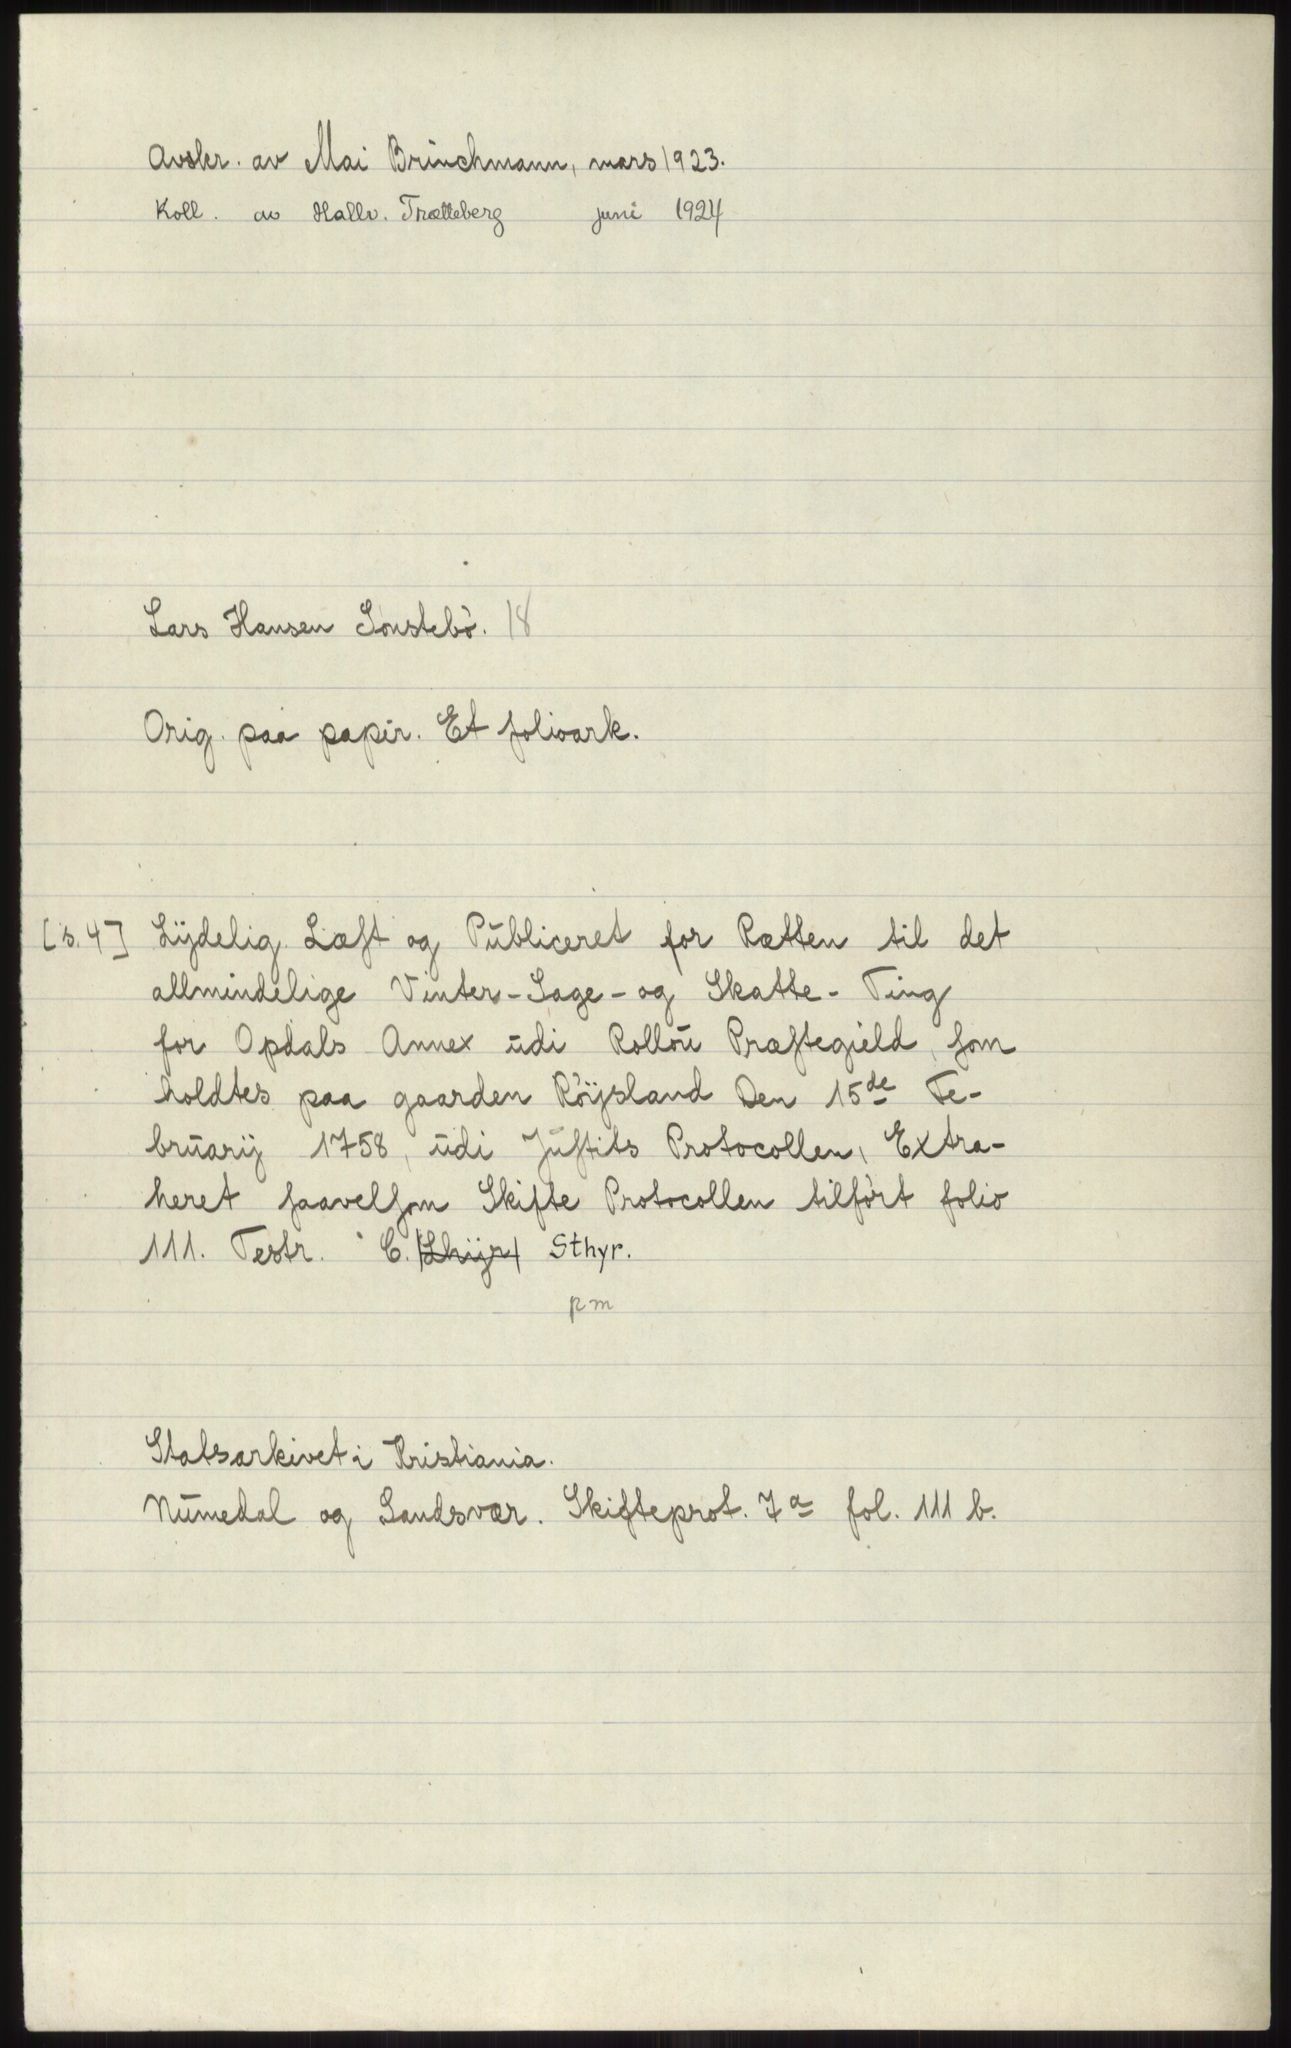 Avskr. av Mai Brinchmann, mars 1923.
Koll. av Hallv. Trætteberg juni 1924
Lars Hansen Sönstebö. 18
Orig. paa papir. Et folioark.
[s. 4] Lÿdelig Læſt og Publiceret for Rætten til det
allmindelige Vinter-Sage- og Skatte- Ting
for Opdals Annex udi Rollou Præſtegield, ſom
holdtes paa gaarden Röÿsland Den 15de Fe-
bruarÿ 1758, udi Juſtits Protocollen, Extra-
heret ſaavelſom Skifte Protocollen tilfört folio
111. Testr. C. Sthyr.
p m
Statsarkivet i Kristiania.
Numedal og Sandsvær. Skifteprot. 7a fol. 111 b.